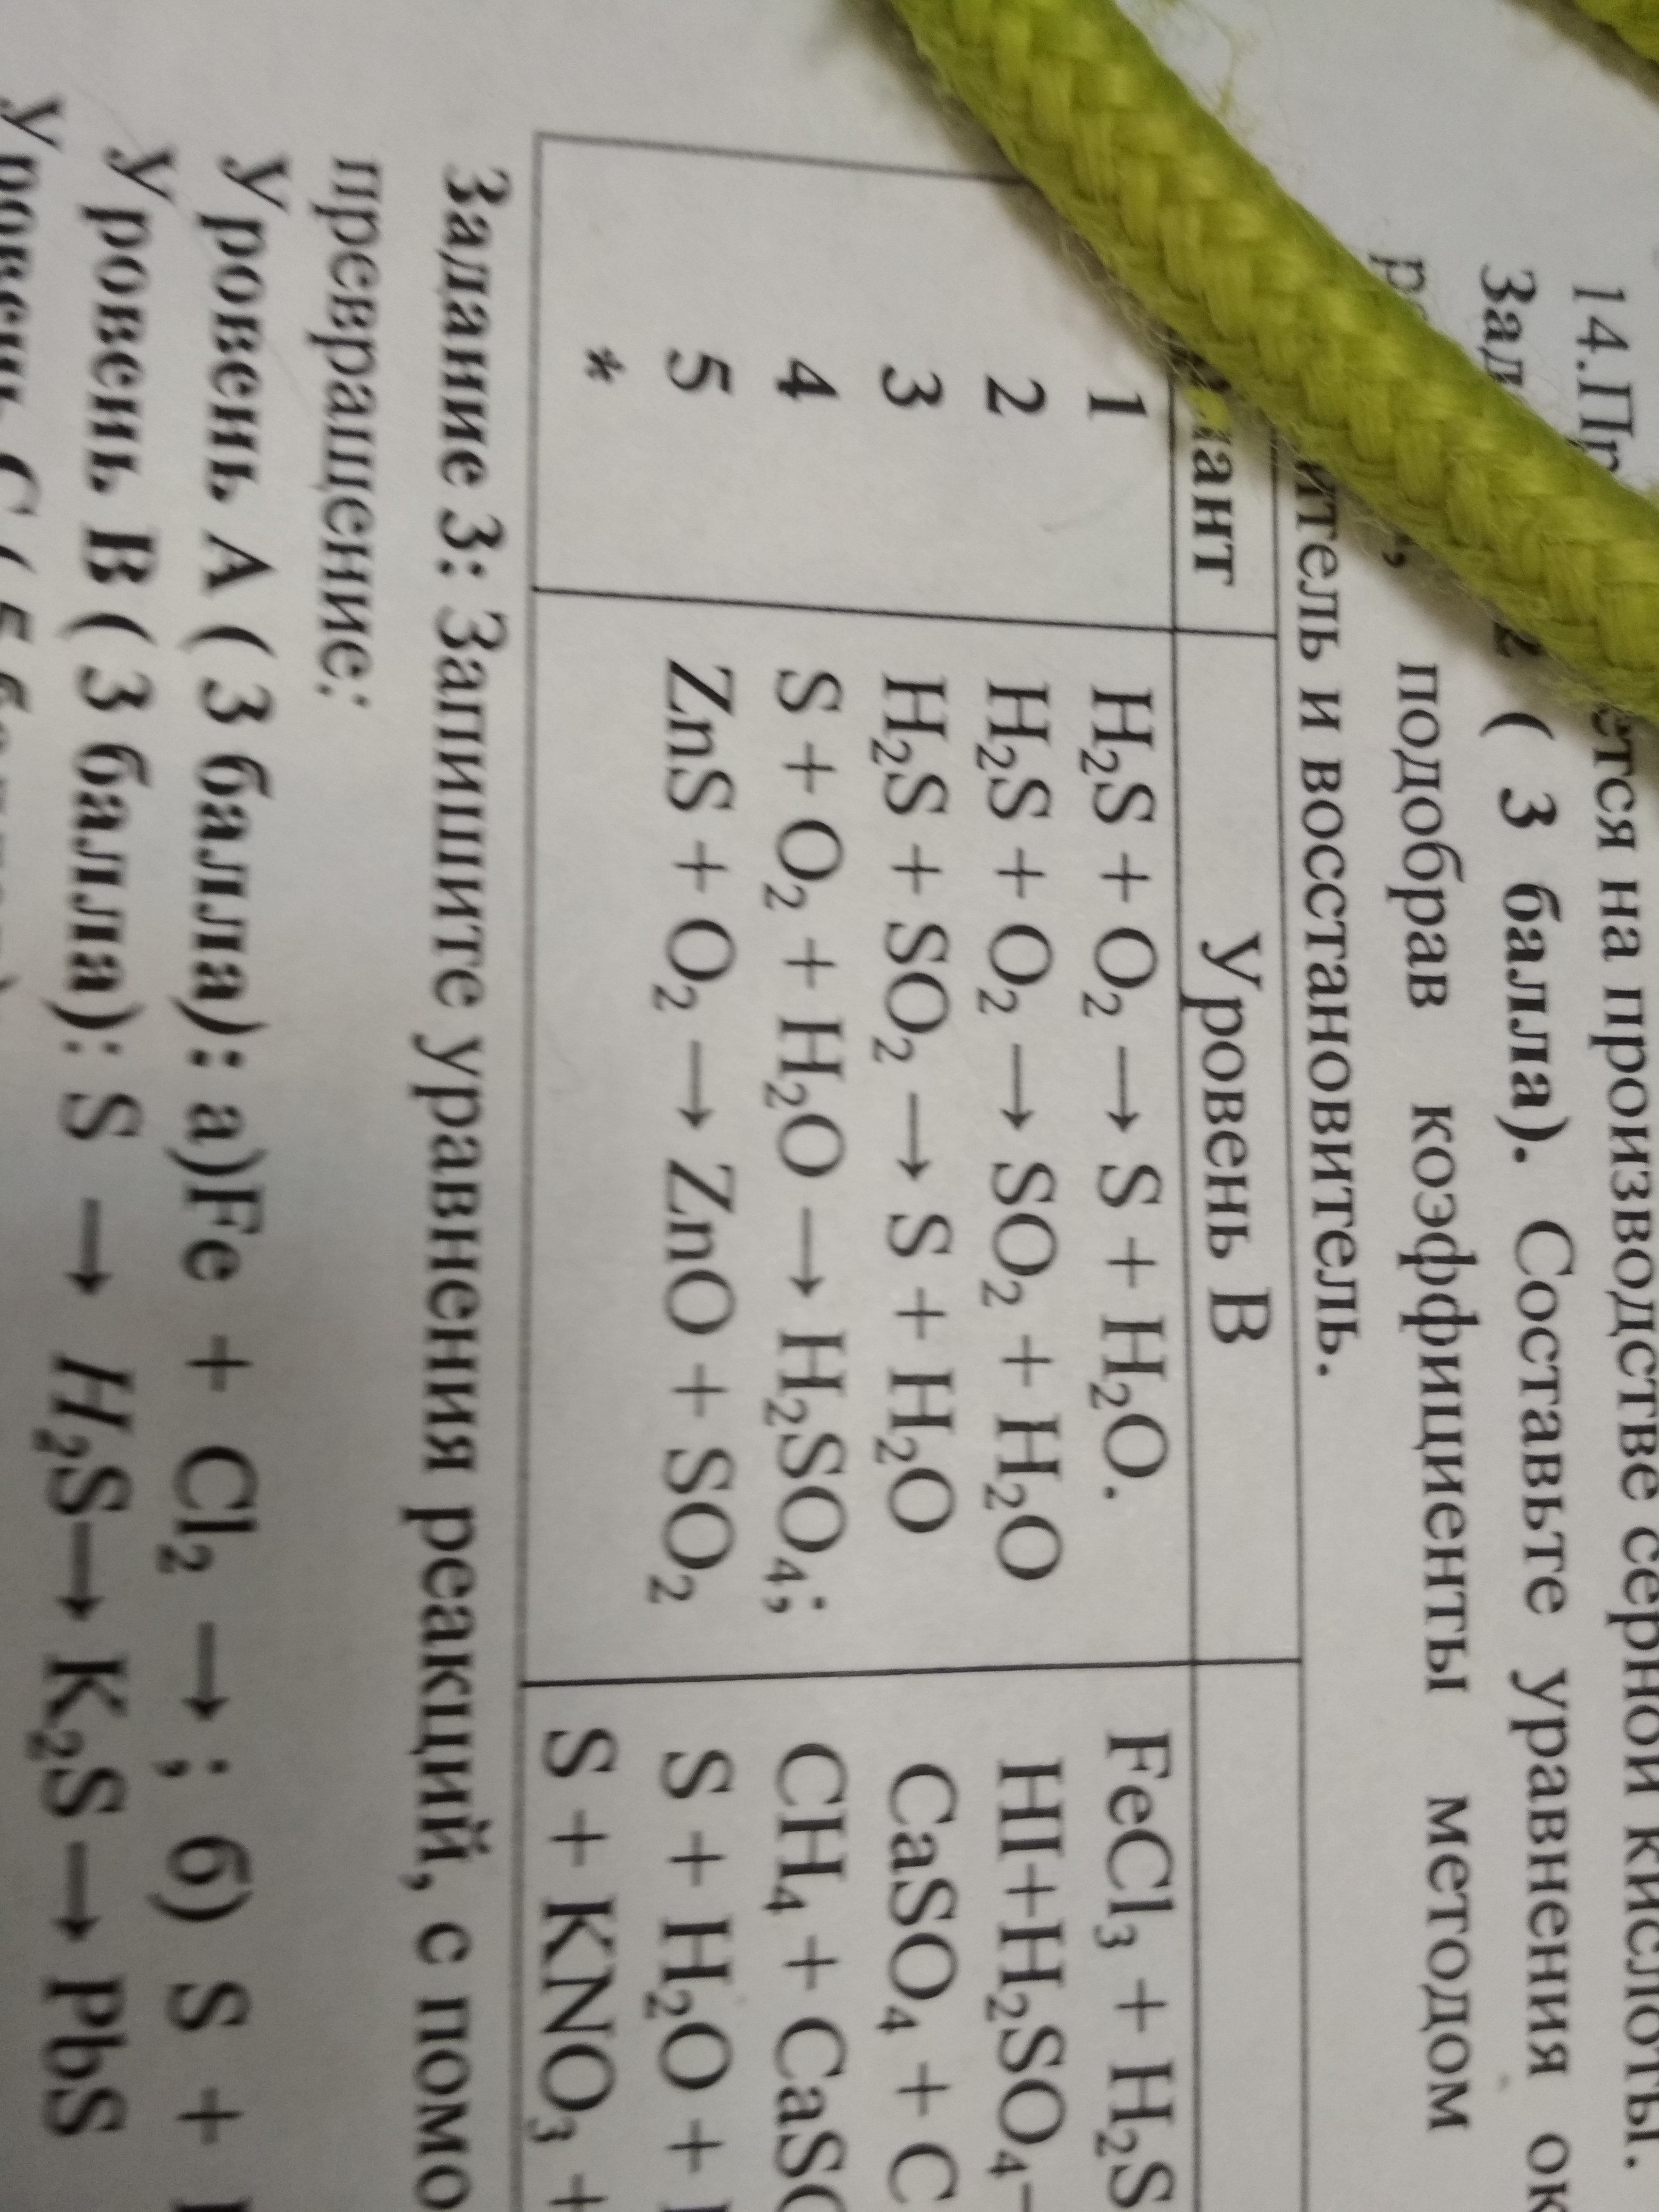 ется на производстве серной кислоты.
2 ( 3 балла). Составьте уравнения ок
подобрав коэффициенты методом
итель и восстановитель.
иант Уровень В
1 H₂S + O₂ → S + H₂O. FeCl₃ + H₂S
2 H₂S + O₂ → SO₂ + H₂O HI+H₂SO₄
3 H₂S + SO₂ → S + H₂O CaSO₄ + C
4 S + O₂ + H₂O → H₂SO₄; CH₄ + CaSO
5 ZnS + O₂ → ZnO + SO₂ S + H₂O +
* S + KNO₃ +
Задание 3: Запишите уравнения реакций, с помо
превращение:
Уровень А ( 3 балла): а)Fe + Cl₂ → ; б) S + 
Уровень В ( 3 балла): S → H₂S→ K₂S→ PbS
Уровень С (